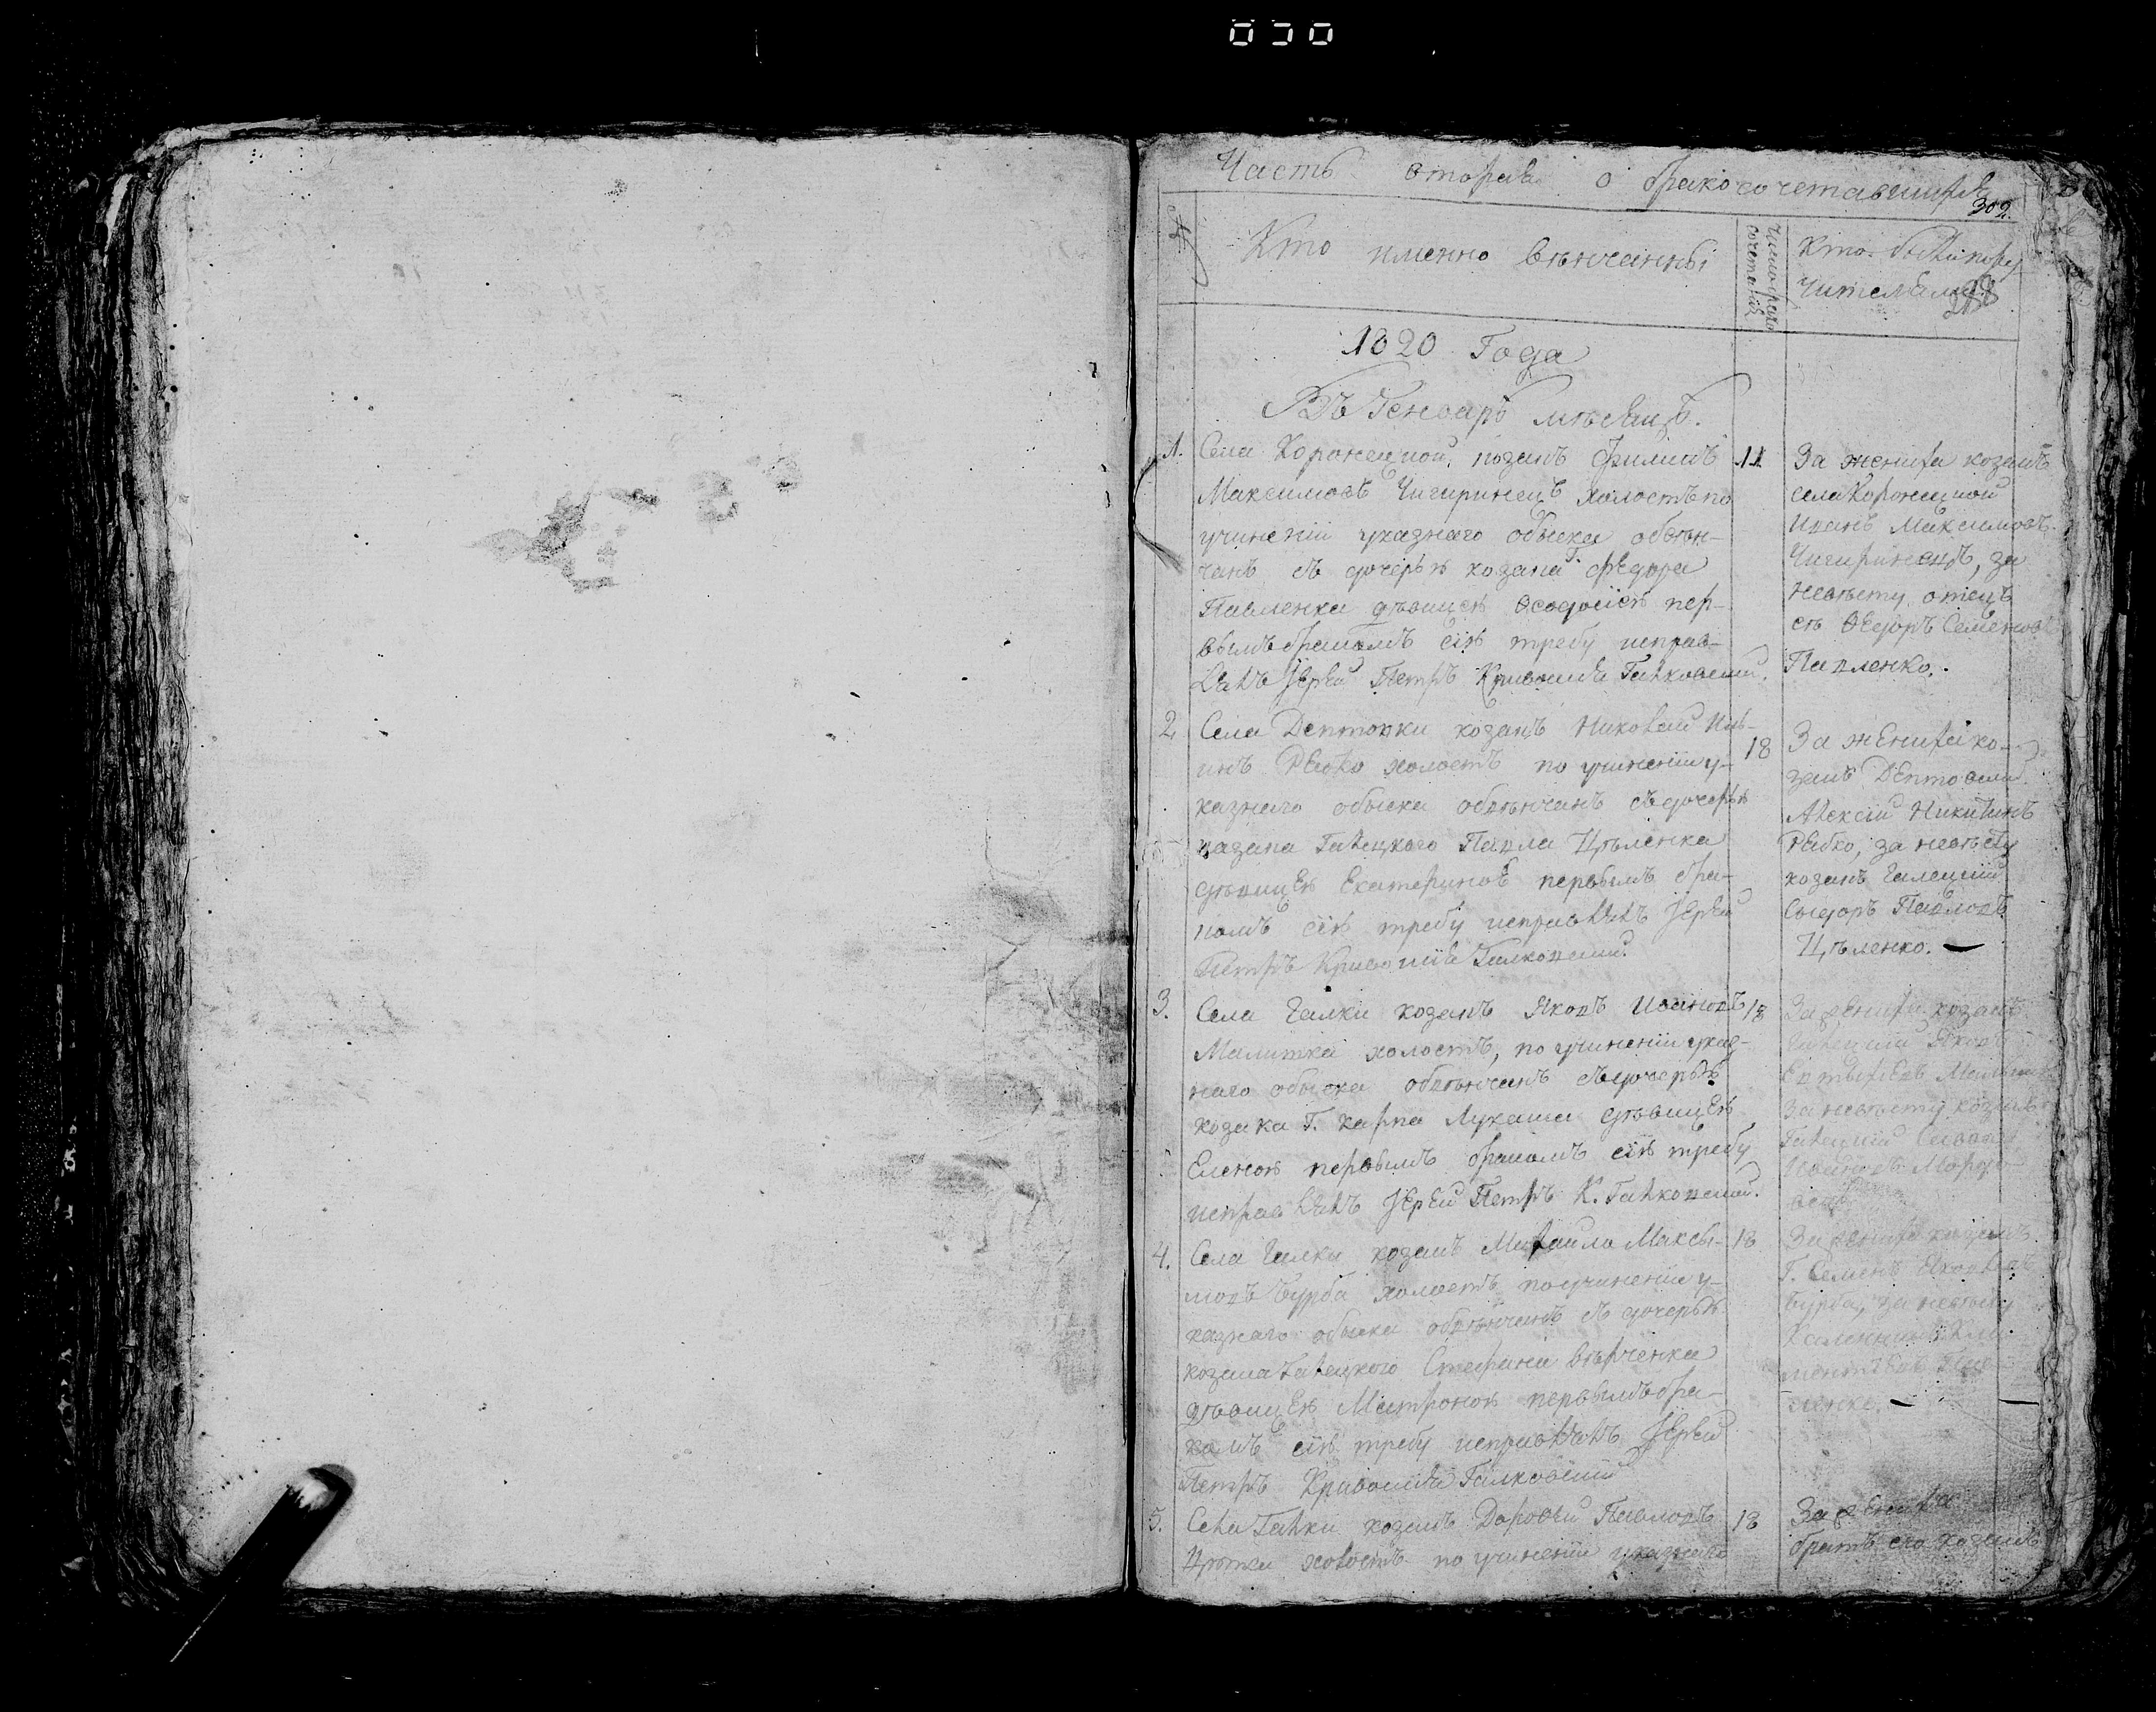 Часть вторая о бракосочетавшихся
302
№
Кто именно венчанны
Число брако
сочетаній
Кто были пору
чителями
1820 Года
Въ Генваръ мѣсяцѣ.
1. Села Коронецкой, козакъ Филипъ 11
Максимовъ Чигиринецъ холостъ по
учиненіи указнаго обыска обвѣн-
чанъ съ дочерью козака Г. Федора
Павленка дѣвицею Ѳеодосіею пер-
вымъ бракомъ сію требу исправ-
лялъ Іерей Петръ Кривошія Галковскій.
За жениха козакъ
села Коронецкой
Иванъ Максимовъ
Чигиринецъ, за
невѣсту отецъ
ея Ѳедоръ Семеновъ
Павленко.
2. Села Дептовки козакъ Николай
инъ Рябко холостъ по учиненіи у- 18
казнаго обыска обвѣнчанъ съ дочерью
казака Галецкого Павла Цѣленка
дѣвицею Екатериною первымъ бра-
комъ сію требу исправлялъ Іерей
Петръ Кривошія Галковскій.
За жениха ко-
закъ Дептовскій
Алексій Никитинъ
Рябко, за невѣсту
козакъ Галецкій
Сыдоръ Павловъ
Цѣленко.
3. Села Галки козакъ Яковъ Ивановъ 18
Малитка холостъ, по учиненіи указ-
наго обыска обвѣнчанъ съ дочерью
козака Г. Карпа Лукаша дѣвицею
Еленою первымъ бракомъ сію требу
исправлялъ Іерей Петръ К. Галковскій.
За жениха козакъ
Галецкій Яковъ
За невѣсту козакъ
Галецкій
4. Села Галки козакъ Михаило Максы- 18
мовъ Бурба холостъ по учиненіи у-
казнаго обыска обвѣнчанъ съ дочерью
козака Галецкого Стефана Вѣрченка
дѣвицею Матроною первымъ бра-
комъ сію требу исправлялъ Іерей
Петръ Кривошія Галковскій
За жениха козакъ
Г. Семенъ Яковлевъ
Бурба, за невѣсту
5. Села Галки козакъ Дорофей Павловъ 18
холостъ по учиненіи указнаго
За жениха
братъ его козакъ